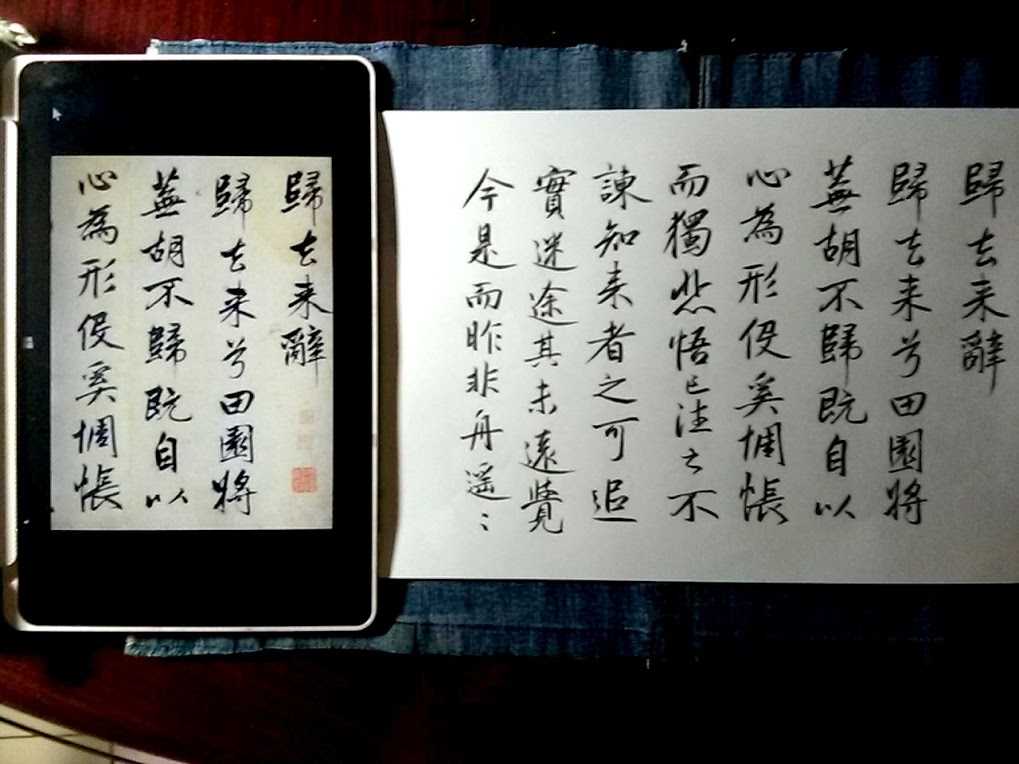 歸去来辭
歸去来兮田園將
蕪胡不歸既自以
心為形役奚惆悵
而獨悲悟已往之不
諫知来者之可追
實迷途其未遠覺
今是而昨非舟遥〻
歸去来辭
歸去来兮田園將
蕪胡不歸既自以
心為形役奚惆悵